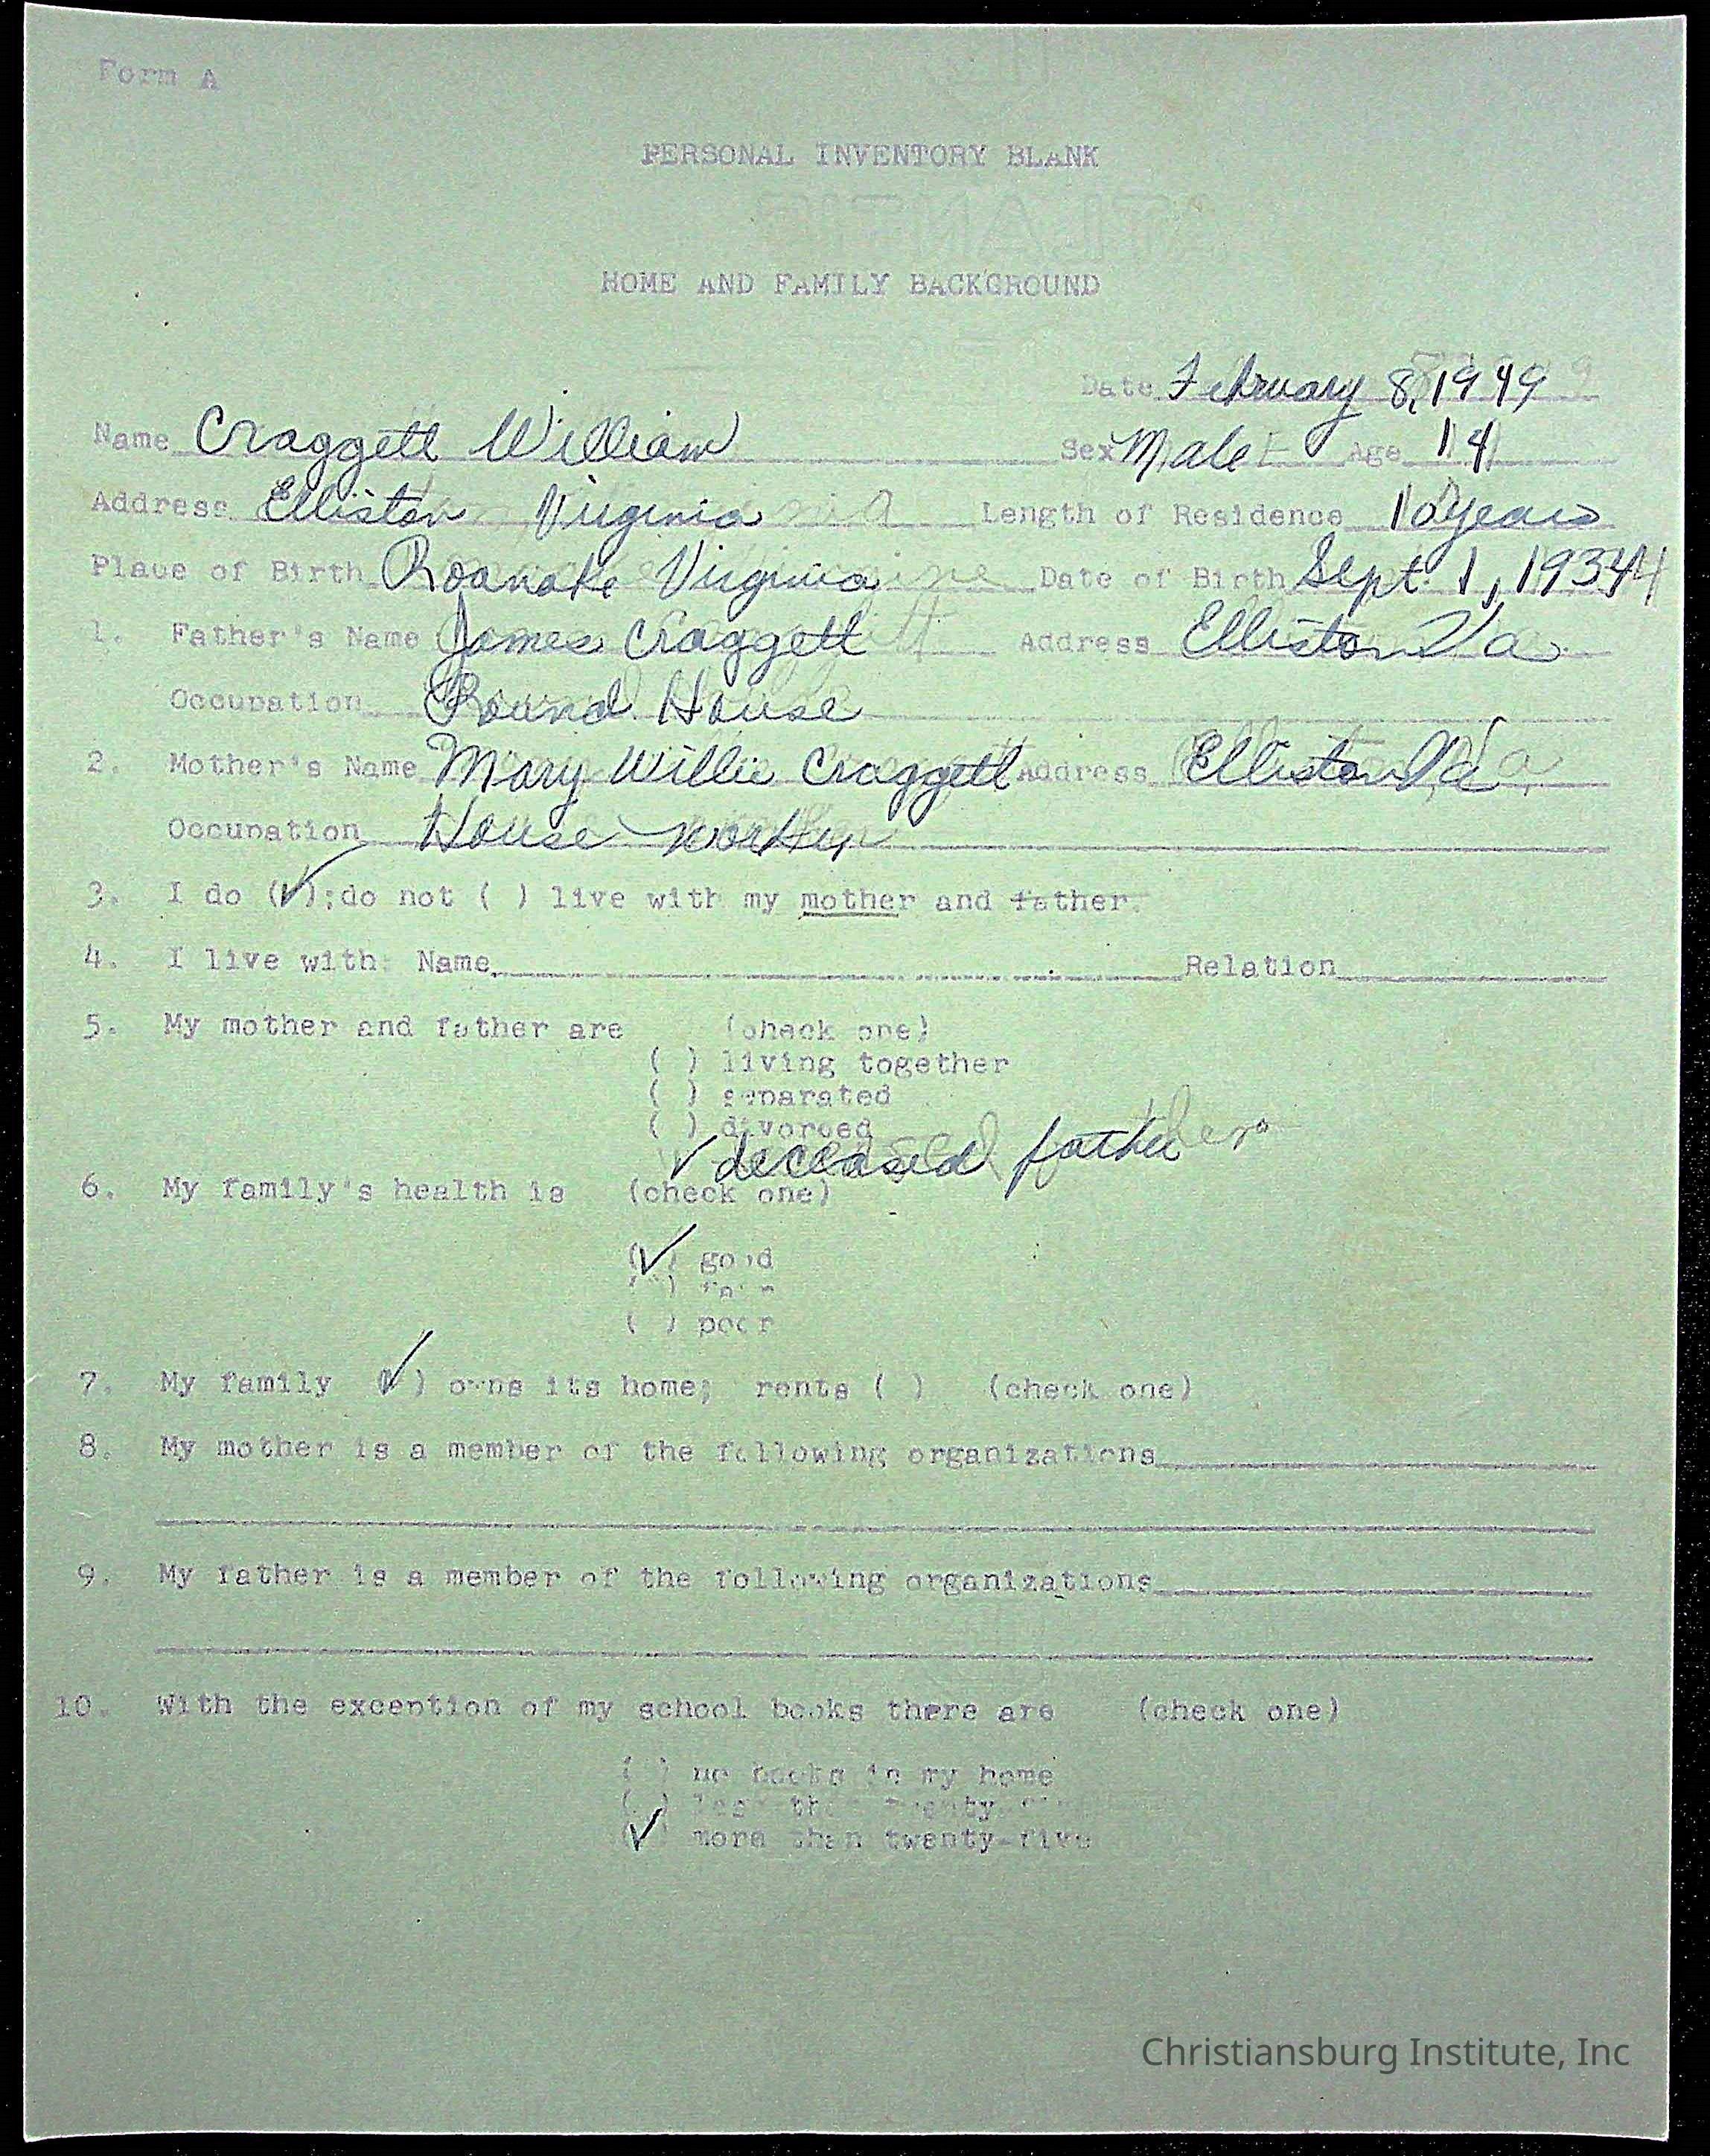 Form A
PERSONAL INVENTORY BLANK
HOME AND FAMILY BACKGROUND
Date February 8, 1949
Name Craggett William Sex Male Age 14
Address Elliston Virginia Length of Residence 10 years
Place of Birth Roanoke Virginia Date of Birth Sept. 1, 1934
1. Father's Name James Craggett Address Elliston Va
Occupation Round House
2. Mother's Name Mary Willie Craggett Address Elliston Va
Occupation House worker
3. I do (✓); do not ( ) live with my mother and father.
4. I live with: Name Relation
5. My mother and father are (check one)
( ) living together
( ) separated
( ) divorced
✓ deceased father
6. My family's health is (check one)
(✓) good
( ) fair
( ) poor
7. My family (✓) owns its home; rents ( ) (check one)
8. My mother is a member of the following organizations
9. My father is a member of the following organizations
10. With the exception of my school books there are (check one)
( ) no books in my home
( ) less than twenty-five
(✓) more than twenty-five
Christiansburg Institute, Inc